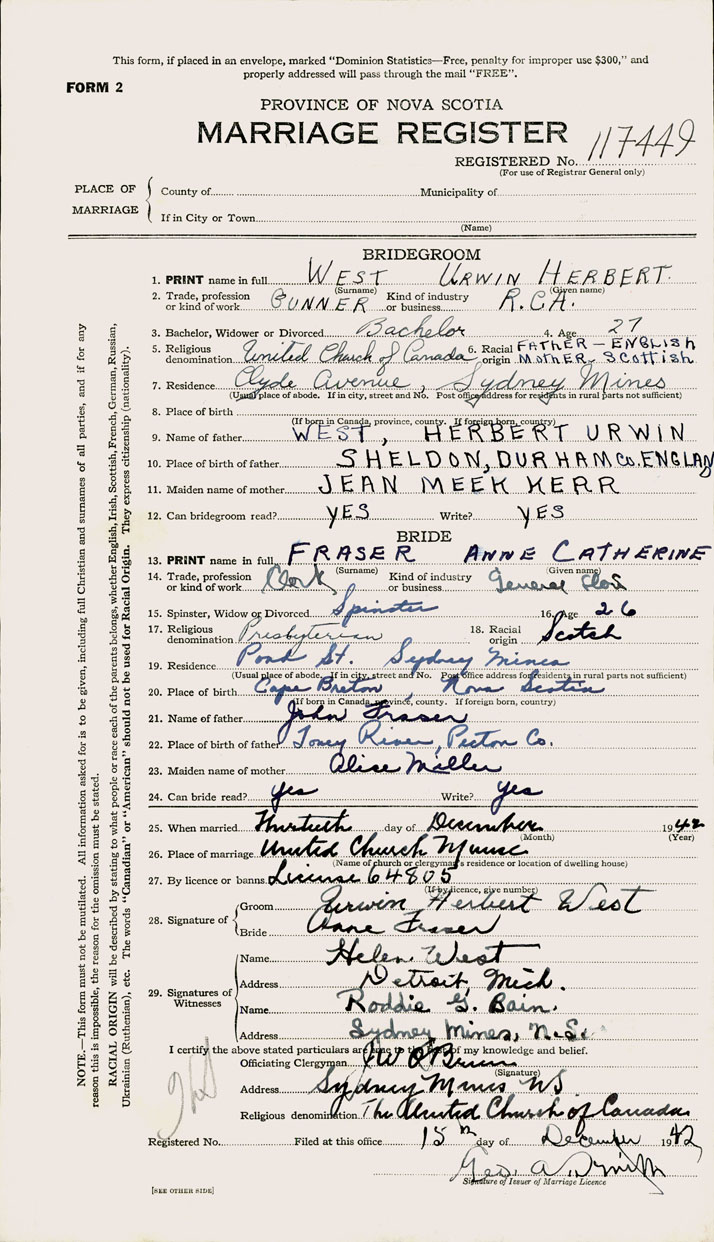 This form, if placed in an envelope, marked "Dominion Statistics—Free, penalty for improper use $300," and
properly addressed will pass through the mail "FREE".
FORM 2
PROVINCE OF NOVA SCOTIA
MARRIAGE REGISTER
REGISTERED No. 117449
(For use of Registrar General only)
PLACE OF MARRIAGE
County of Municipality of
If in City or Town
(Name)
BRIDEGROOM
1. PRINT name in full WEST URWIN HERBERT
(Surname) (Given name)
2. Trade, profession or kind of work GUNNER Kind of industry or business R.C.A.
3. Bachelor, Widower or Divorced Bachelor 4. Age 27
5. Religious denomination United Church of Canada 6. Racial origin FATHER - ENGLISH MOTHER - SCOTTISH
7. Residence Clyde Avenue, Sydney Mines
(Usual place of abode. If in city, street and No. Post office address for residents in rural parts not sufficient)
8. Place of birth
(If born in Canada, province, county. If foreign born, country)
9. Name of father WEST, HERBERT URWIN
10. Place of birth of father SHELDON, DURHAM CO. ENGLAND
11. Maiden name of mother JEAN MEEK KERR
12. Can bridegroom read? YES Write? YES
BRIDE
13. PRINT name in full FRASER ANNE CATHERINE
(Surname) (Given name)
14. Trade, profession or kind of work Clerk Kind of industry or business General Store
15. Spinster, Widow or Divorced Spinster 16. Age 26
17. Religious denomination Presbyterian 18. Racial origin Scotch
19. Residence Pond St. Sydney Mines
(Usual place of abode. If in city, street and No. Post office address for residents in rural parts not sufficient)
20. Place of birth Cape Breton, Nova Scotia
(If born in Canada, province, county. If foreign born, country)
21. Name of father John Fraser
22. Place of birth of father Toney River, Pictou Co.
23. Maiden name of mother Alise Miller
24. Can bride read? Yes Write? Yes
25. When married Thirtieth day of December 1942
(Month) (Year)
26. Place of marriage United Church Manse
(Name of church or clergyman's residence or location of dwelling house)
27. By licence or banns License 64805
(If by licence, give number)
28. Signature of
Groom Urwin Herbert West
Bride Anne Fraser
29. Signatures of Witnesses
Name Helen West
Address Detroit, Mich.
Name Roddie G. Bain.
Address Sydney Mines, N.S.
I certify the above stated particulars are true to the best of my knowledge and belief.
Officiating Clergyman
(Signature)
Address Sydney Mines NS
Religious denomination The United Church of Canada
Registered No. Filed at this office 15th day of December 1942
Geo. A. Smith
Signature of Issuer of Marriage Licence
[SEE OTHER SIDE]
NOTE.—This form must not be mutilated. All information asked for is to be given, including full Christian and surnames of all parties, and if for any
reason this is impossible, the reason for the omission must be stated.
RACIAL ORIGIN will be described by stating to what people or race each of the parents belongs, whether English, Irish, Scottish, French, German, Russian,
Ukrainian (Ruthenian), etc. The words "Canadian" or "American" should not be used for Racial Origin. They express citizenship (nationality).